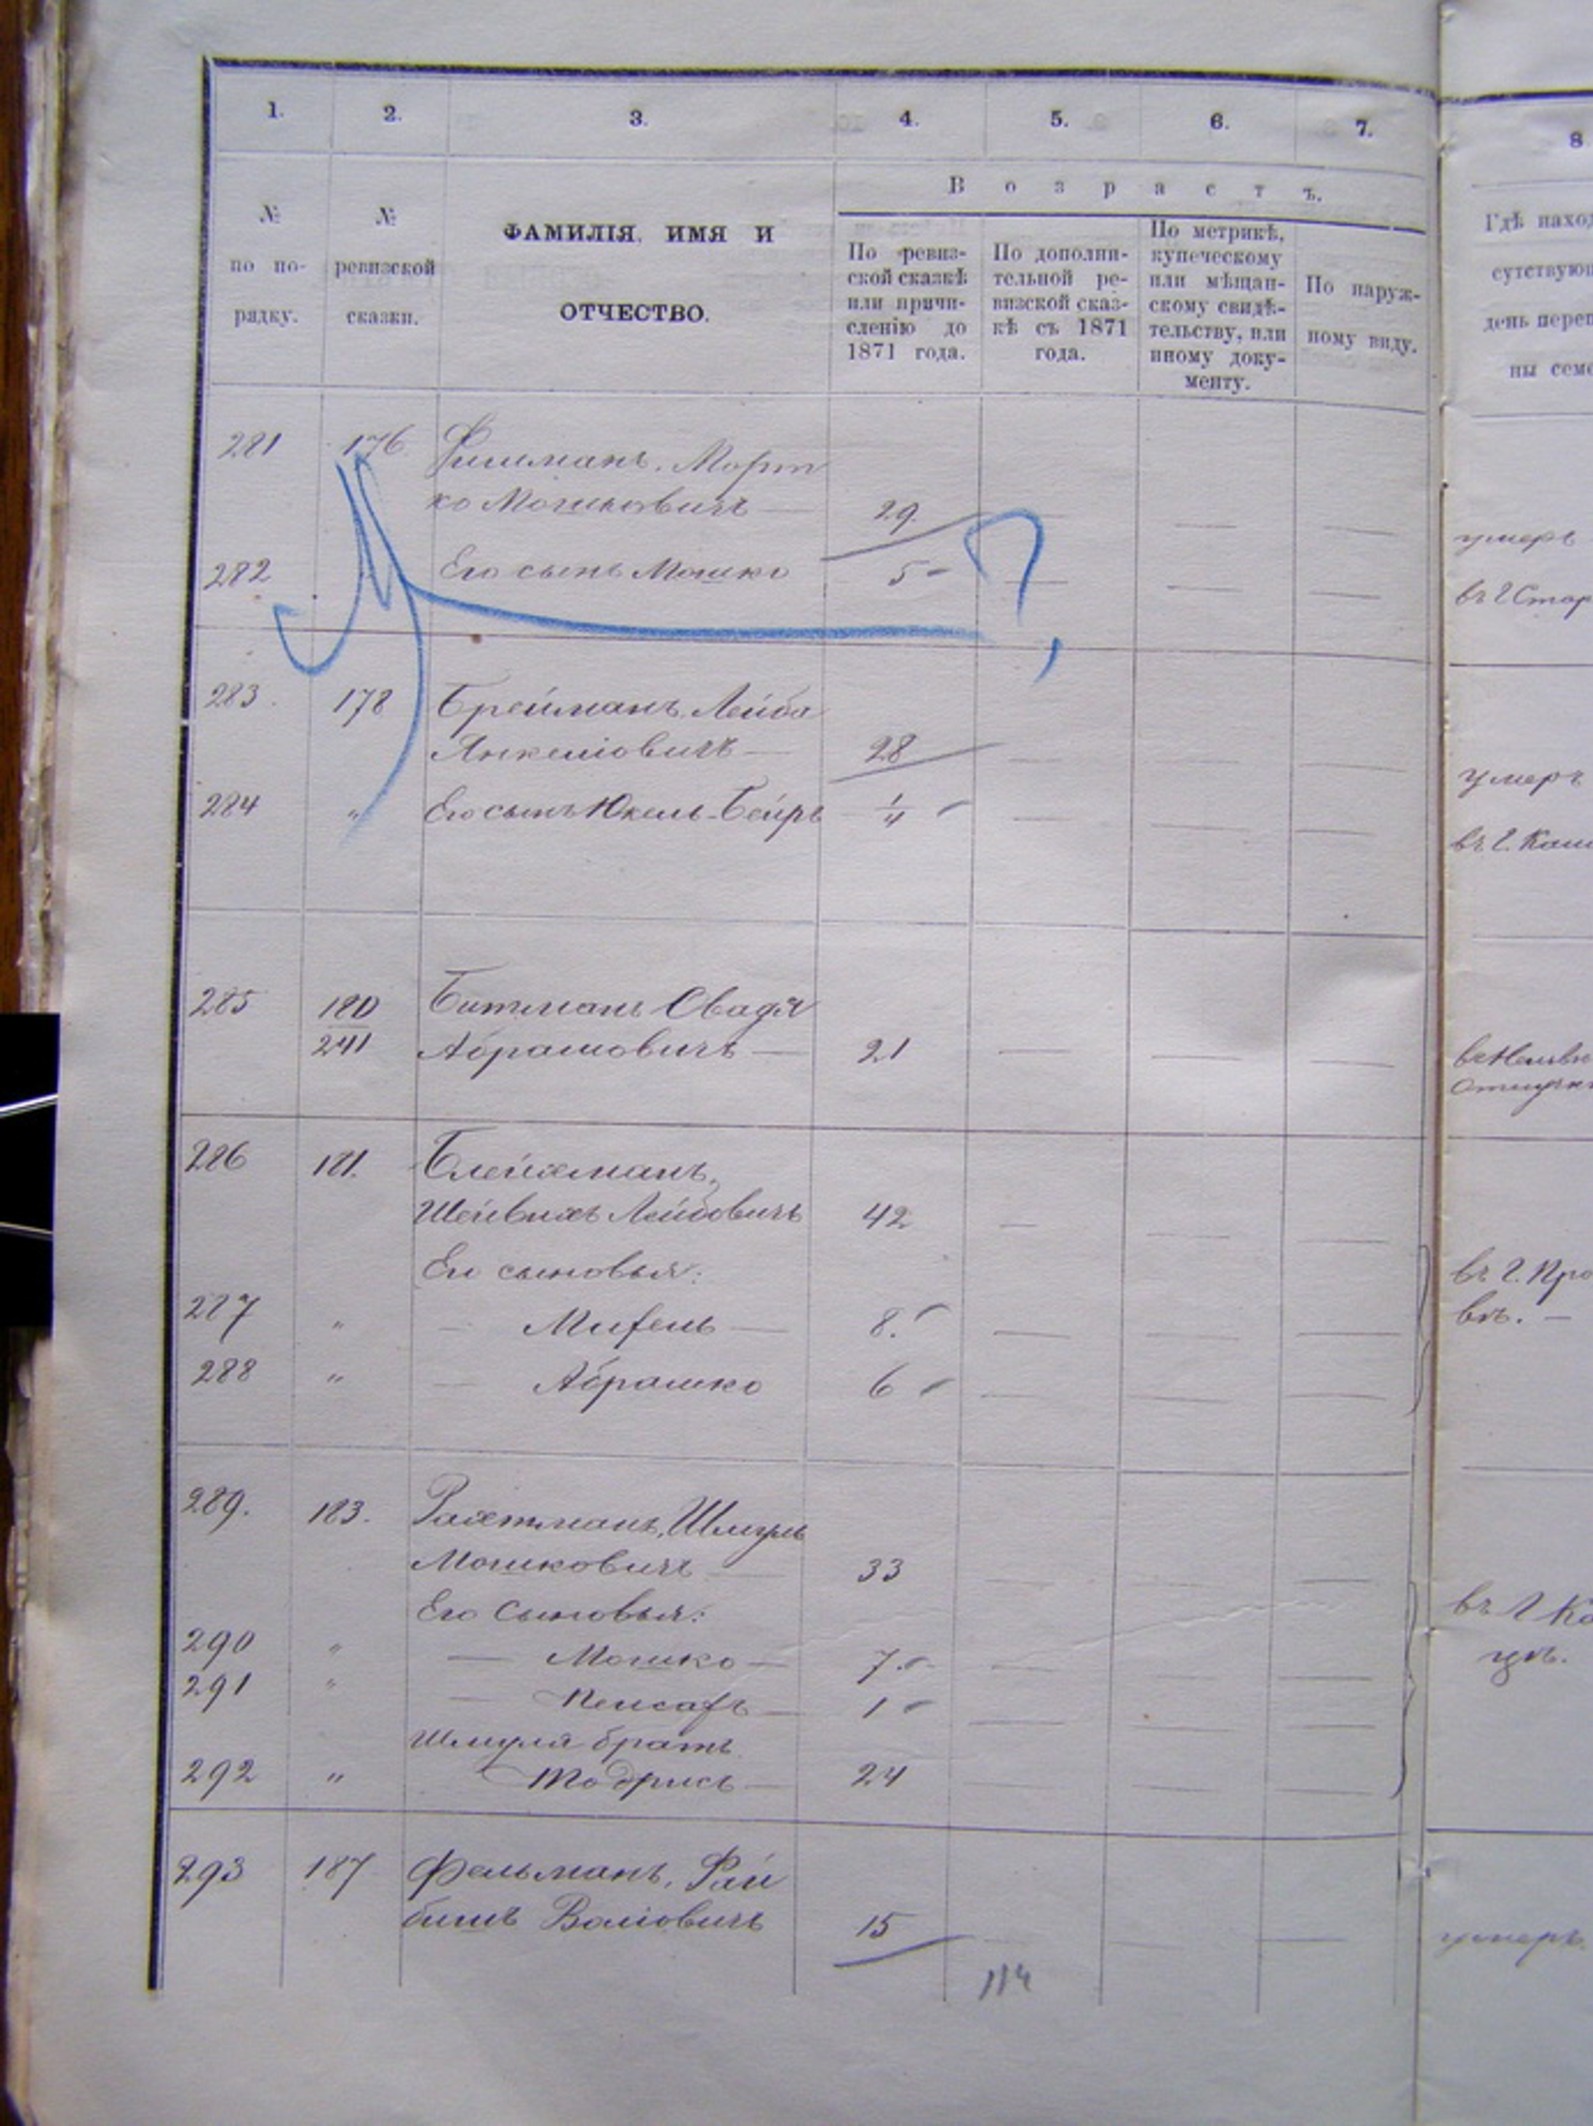 1. 2. 3. 4. 5. 6. 7. 8
№ по по-рядку.
№ ревизской сказки.
ФАМИЛІЯ, ИМЯ И
ОТЧЕСТВО.
Возрастъ.
По ревиз-
ской сказкѣ
или причи-
сленію до
1871 года.
По дополни-
тельной ре-
визской сказ-
кѣ съ 1871
года.
По метрикѣ,
купеческому
или мѣщан-
скому свидѣ-
тельству, или
иному доку-
менту.
По наруж-
ному виду.
Гдѣ наход
сутствующ
день переп
ны семе
281 176 Фишманъ, Морт
ко Мошковичъ — 29 — — умеръ
282 Его сынъ Мошко 5 — — — въ г Стар
283. 178 Брейманъ Лейба
Янкеліовичъ — 28 — — — умеръ
284 „ Его сынъ Юкель-Бейръ 1/4 — — — въ г.
285 180 Битманъ Овадя
241 Абрамовичъ — 21 — — —
286 181. Блейхманъ,
Шейвахъ Лейбовичъ 42 — — —
Его сыновья: въ г. Про
287 „ — — 8. — — — вѣ. —
288 „ — Абрашко 6 — — —
289. 183. Рахтманъ, Шмуль
Мошковичъ — 33 — — —
Его сыновья: въ г Ка
290 „ — Мошко — 7. — — — цѣ.
291 „ — Пейсахъ — 1 — — —
Шмуля братъ
292 „ Тодрисъ — 24 — —
293 187 Фельманъ, Рай
бишъ Воліовичъ 15 — — — умеръ
114